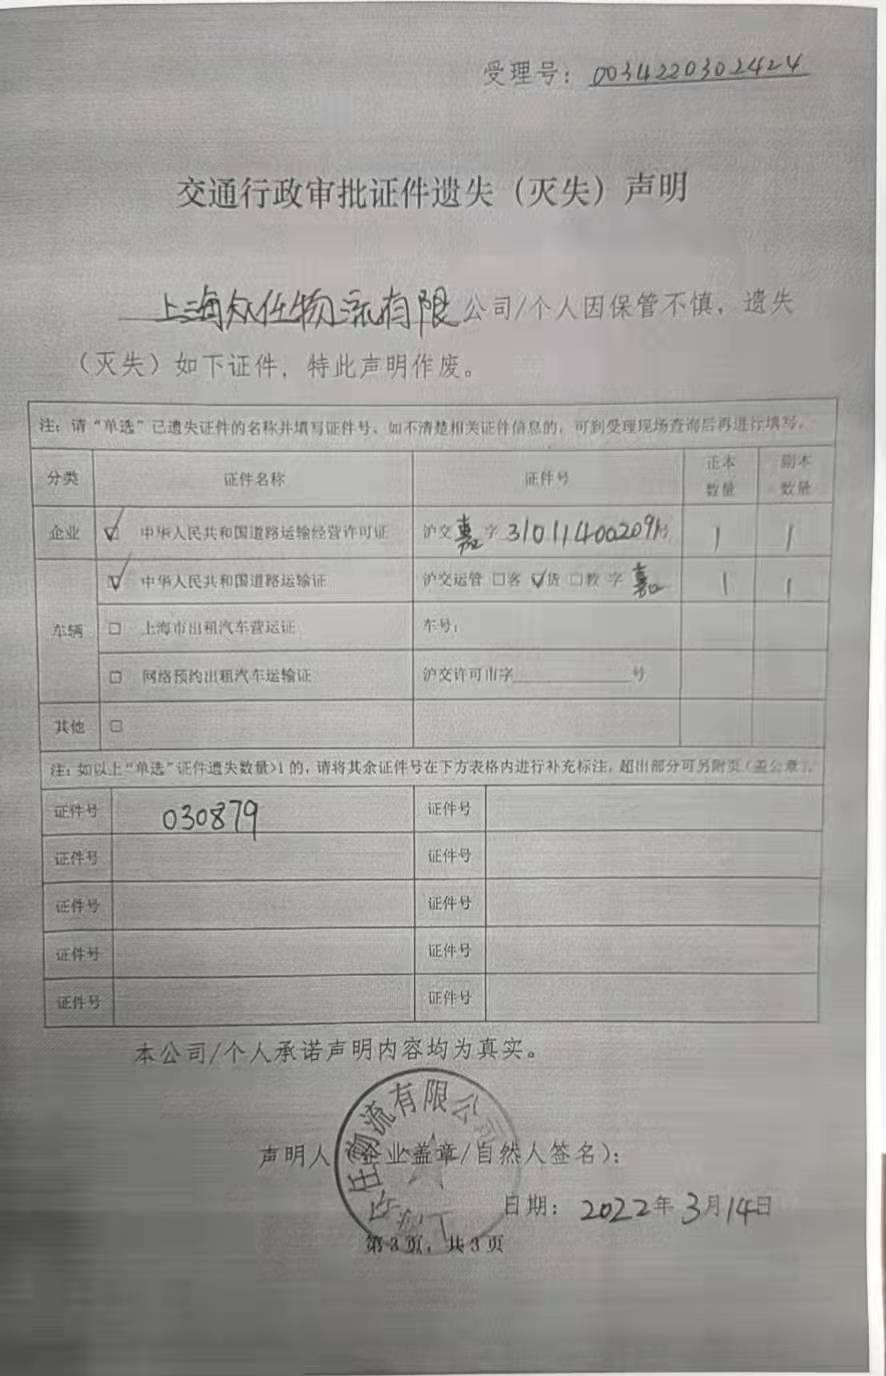 受理号：0034220302424
交通行政审批证件遗失（灭失）声明
上海众任物流有限公司/个人因保管不慎，遗失
（灭失）如下证件，特此声明作废。
注：请“单选”已遗失证件的名称并填写证件号。如不清楚相关证件信息的，可到受理现场查询后再进行填写。
分类 证件名称 证件号 正本数量 副本数量
企业 ☑ 中华人民共和国道路运输经营许可证 沪交嘉字310114002091号 1 1
车辆 ☑ 中华人民共和国道路运输证 沪交运管 □客 ☑货 □教 字 嘉 1 1
□ 上海市出租汽车营运证 车号：
□ 网络预约出租汽车运输证 沪交许可市字 号
其他 □
注：如以上“单选”证件遗失数量>1的，请将其余证件号在下方表格内进行补充标注，超出部分可另附页（盖公章）。
证件号 030879 证件号
证件号 证件号
证件号 证件号
证件号 证件号
证件号 证件号
本公司/个人承诺声明内容均为真实。
任物流有限公司
声明人（企业盖章/自然人签名）：
日期：2022年3月14日
第3页，共3页